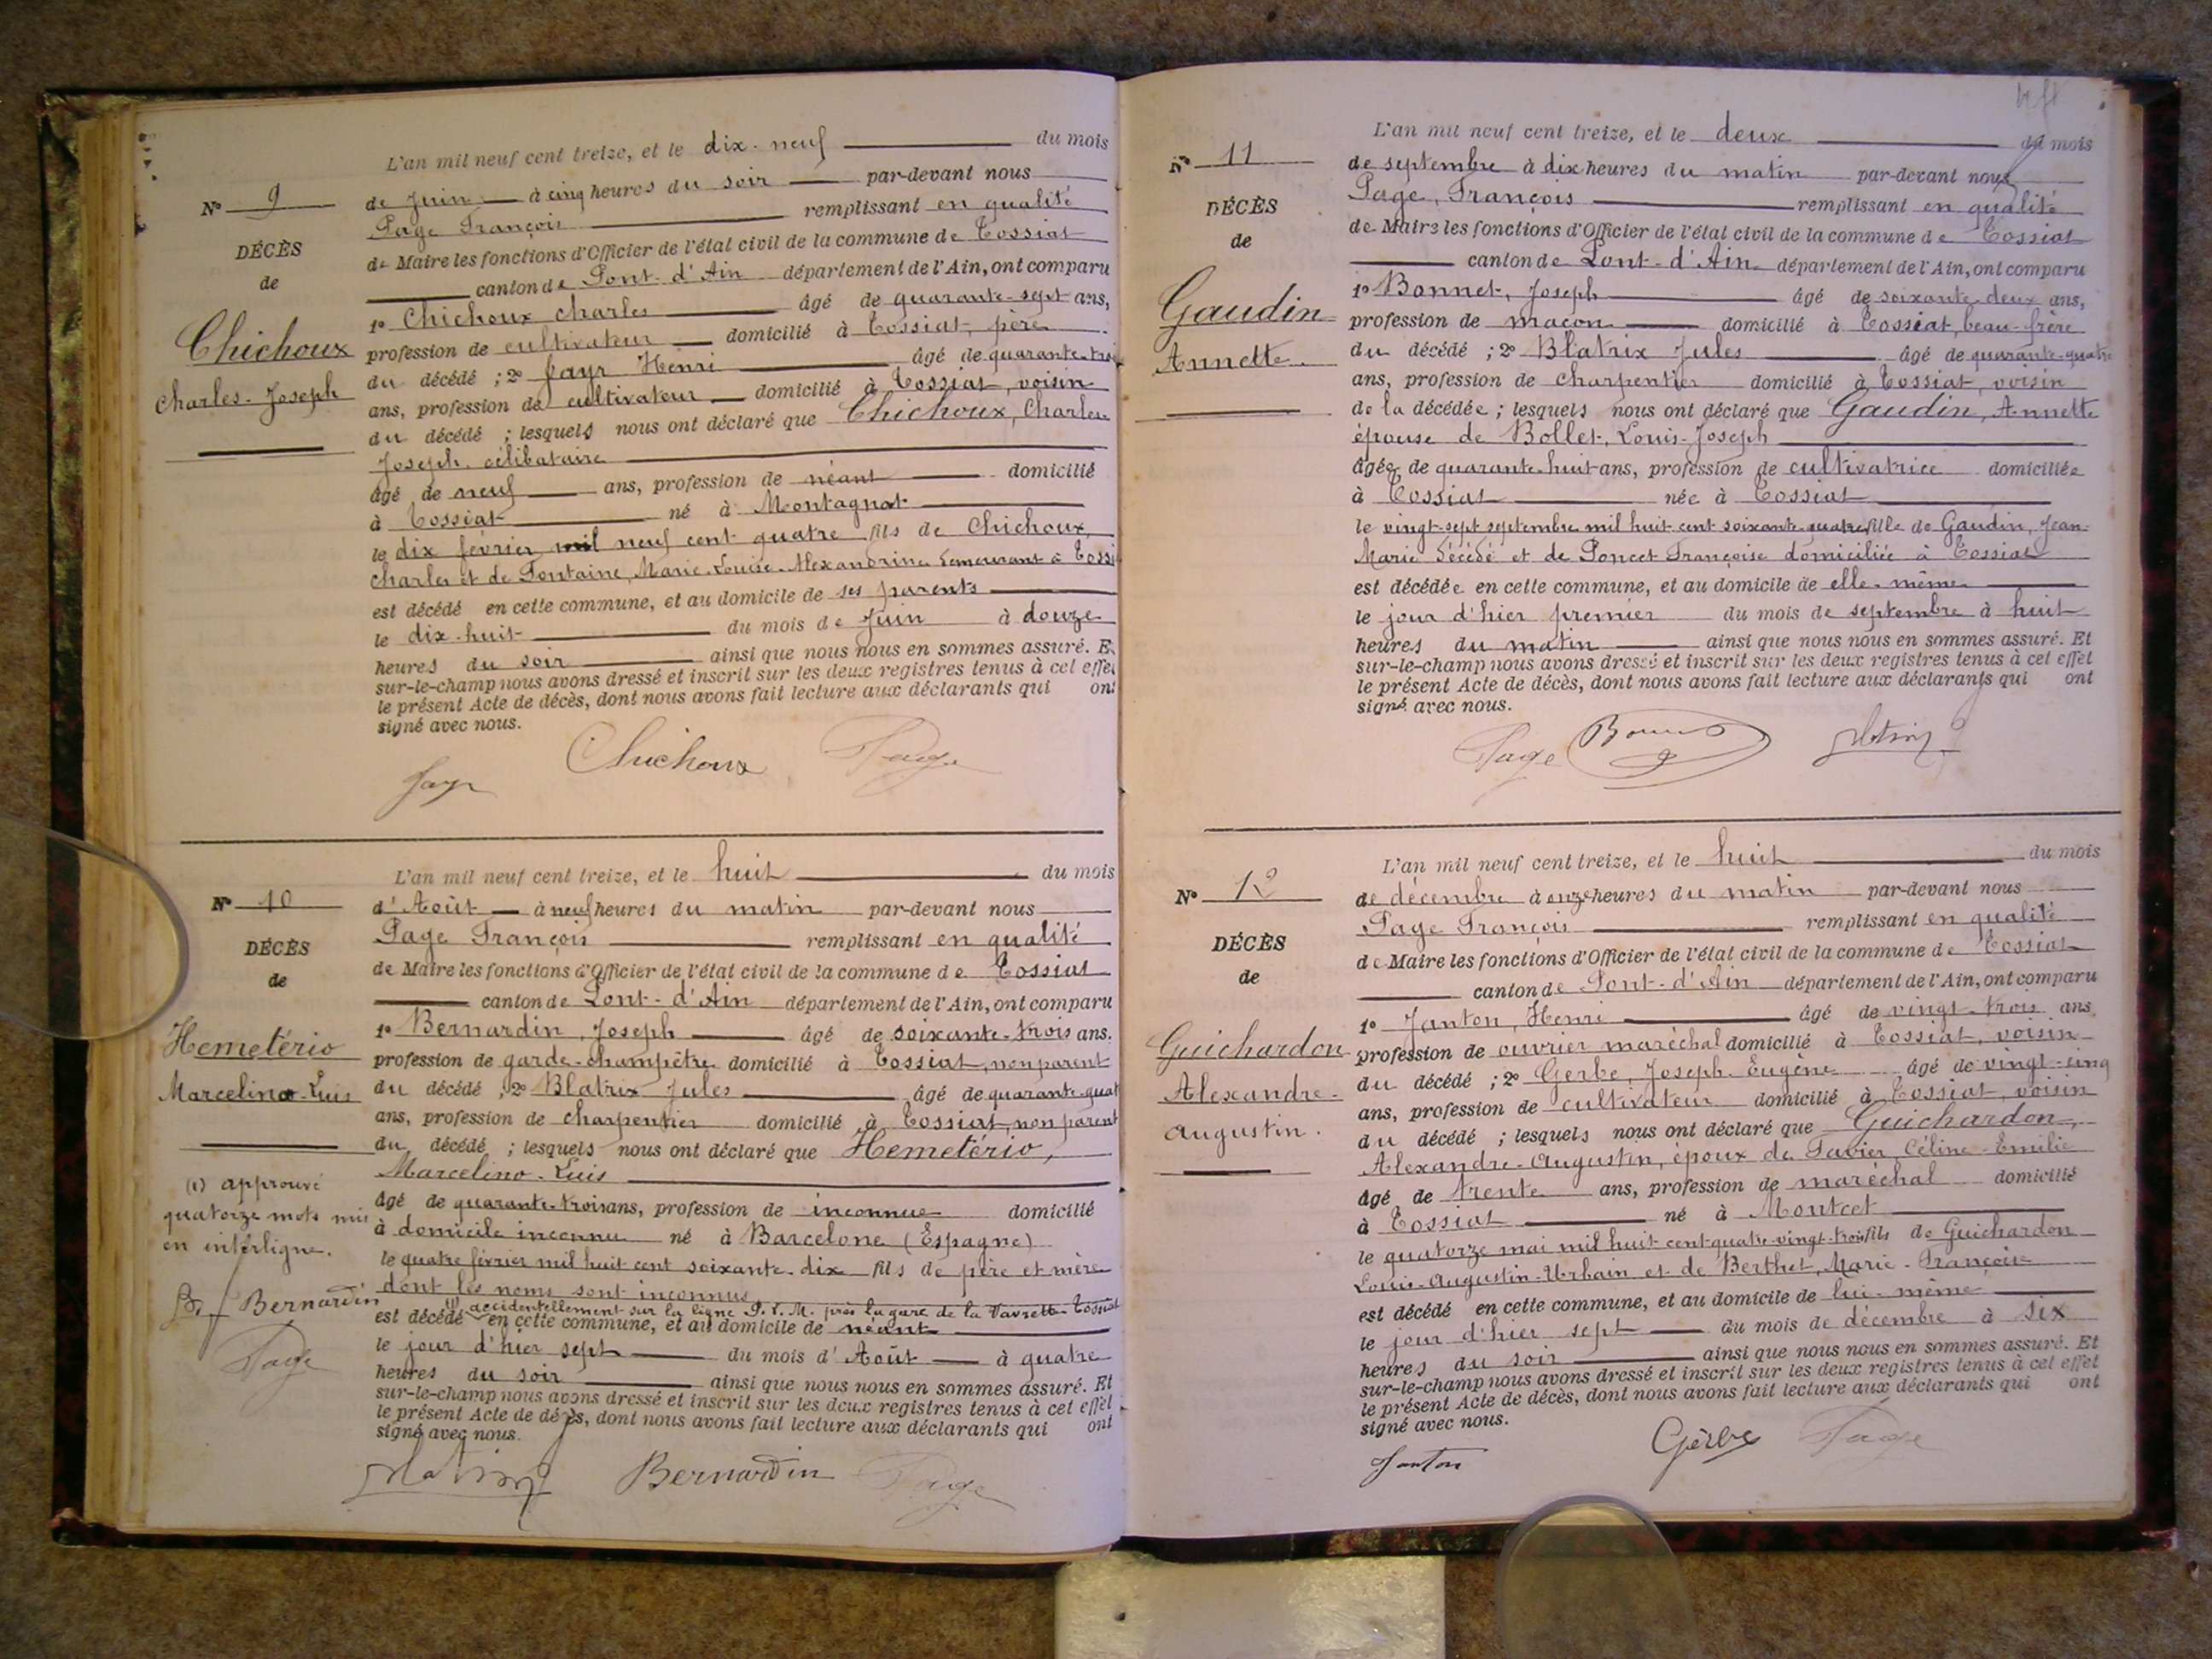 N° 9
DÉCÈS
de
Chichoux
Charles-Joseph
L'an mil neuf cent treize, et le dix-neuf du mois
de Juin à cinq heures du soir par-devant nous
Page François remplissant en qualité
de Maire les fonctions d'Officier de l'état civil de la commune de Tossiat
canton de Pont-d'Ain département de l'Ain, ont comparu
1° Chichoux Charles âgé de quarante-sept ans,
profession de cultivateur domicilié à Tossiat, père
du décédé ; 2° Jayr Henri âgé de quarante-troi
ans, profession de cultivateur domicilié à Tossiat, voisin
du décédé ; lesquels nous ont déclaré que Chichoux, Charles
Joseph, célibataire
âgé de neuf ans, profession de néant domicilié
à Tossiat né à Montagnat
le dix février mil neuf cent quatre fils de Chichoux
Charles et de Fontaine, Marie-Louise-Alexandrine demeurant à Toss
est décédé en cette commune, et au domicile de ses parents
le dix-huit du mois de Juin à douze
heures du soir ainsi que nous nous en sommes assuré. E
sur-le-champ nous avons dressé et inscrit sur les deux registres tenus à cet effet
le présent Acte de décès, dont nous avons fait lecture aux déclarants qui ont
signé avec nous.
Jayr Chichoux Page
N° 10
DÉCÈS
de
Hemetério
Marcelino-Luis
(1) approuvé
quatorze mots mis
en interligne.
Bernardin
Page
L'an mil neuf cent treize, et le huit du mois
d'Août à neuf heures du matin par-devant nous
Page François remplissant en qualité
de Maire les fonctions d'Officier de l'état civil de la commune de Tossiat
canton de Pont-d'Ain département de l'Ain, ont comparu
1° Bernardin, Joseph âgé de soixante-trois ans.
profession de garde-champêtre domicilié à Tossiat, non parent
du décédé ; 2° Blatrix Jules âgé de quarante-quat
ans, profession de charpentier domicilié à Tossiat, non parent
du décédé ; lesquels nous ont déclaré que Hemetério,
Marcelino-Luis
âgé de quarante-trois ans, profession de inconnue domicilié
à domicile inconnu né à Barcelone (Espagne)
le quatre février mil huit cent soixante-dix fils de père et mère
dont les noms sont inconnus
(1) accidentellement sur la ligne P. L. M. près la gare de la Vavrette-Tossiat
est décédé en cette commune, et au domicile de néant
le jour d'hier sept du mois d'Août à quatre
heures du soir ainsi que nous nous en sommes assuré. Et
sur-le-champ nous avons dressé et inscrit sur les deux registres tenus à cet effet
le présent Acte de décès, dont nous avons fait lecture aux déclarants qui ont
signé avec nous.
Blatrix Bernardin Page
N° 11
DÉCÈS
de
Gaudin
Annette.
L'an mil neuf cent treize, et le deux du mois
de septembre à dix heures du matin par-devant nous
Page, François remplissant en qualité
de Maire les fonctions d'Officier de l'état civil de la commune de Tossiat
canton de Pont-d'Ain département de l'Ain, ont comparu
1° Bonnet, Joseph âgé de soixante-deux ans,
profession de maçon domicilié à Tossiat, beau-frère
du décédé ; 2° Blatrix Jules âgé de quarante-quatre
ans, profession de charpentier domicilié à Tossiat, voisin
de la décédée ; lesquels nous ont déclaré que Gaudin, Annette
épouse de Bollet, Louis-Joseph
âgée de quarante-huit ans, profession de cultivatrice domiciliée
à Tossiat née à Tossiat
le vingt-sept septembre mil huit cent soixante-quatre fille de Gaudin, Jean-
Marie décédé et de Poncet Françoise domiciliée à Tossiat
est décédée en cette commune, et au domicile de elle-même
le jour d'hier premier du mois de septembre à huit
heures du matin ainsi que nous nous en sommes assuré. Et
sur-le-champ nous avons dressé et inscrit sur les deux registres tenus à cet effet
le présent Acte de décès, dont nous avons fait lecture aux déclarants qui ont
signé avec nous.
Page Bonnet Blatrix
N° 12
DÉCÈS
de
Guichardon
Alexandre-
Augustin.
L'an mil neuf cent treize, et le huit du mois
de décembre à onze heures du matin par-devant nous
Page François remplissant en qualité
de Maire les fonctions d'Officier de l'état civil de la commune de Tossiat
canton de Pont-d'Ain département de l'Ain, ont comparu
1° Janton, Henri âgé de vingt-trois ans,
profession de ouvrier maréchal domicilié à Tossiat, voisin
du décédé ; 2° Gerbe, Joseph-Eugène âgé de vingt-cinq
ans, profession de cultivateur domicilié à Tossiat, voisin
du décédé ; lesquels nous ont déclaré que Guichardon,
Alexandre-Augustin, époux de Tavier, Céline-Emilie
âgé de trente ans, profession de maréchal domicilié
à Tossiat né à Montcet
le quatorze mai mil huit cent quatre-vingt-trois fils de Guichardon
Louis-Augustin-Urbain et de Berthet, Marie-Françoise
est décédé en cette commune, et au domicile de lui-même
le jour d'hier sept du mois de décembre à six
heures du soir ainsi que nous nous en sommes assuré. Et
sur-le-champ nous avons dressé et inscrit sur les deux registres tenus à cet effet
le présent Acte de décès, dont nous avons fait lecture aux déclarants qui ont
signé avec nous.
Janton Gerbe Page